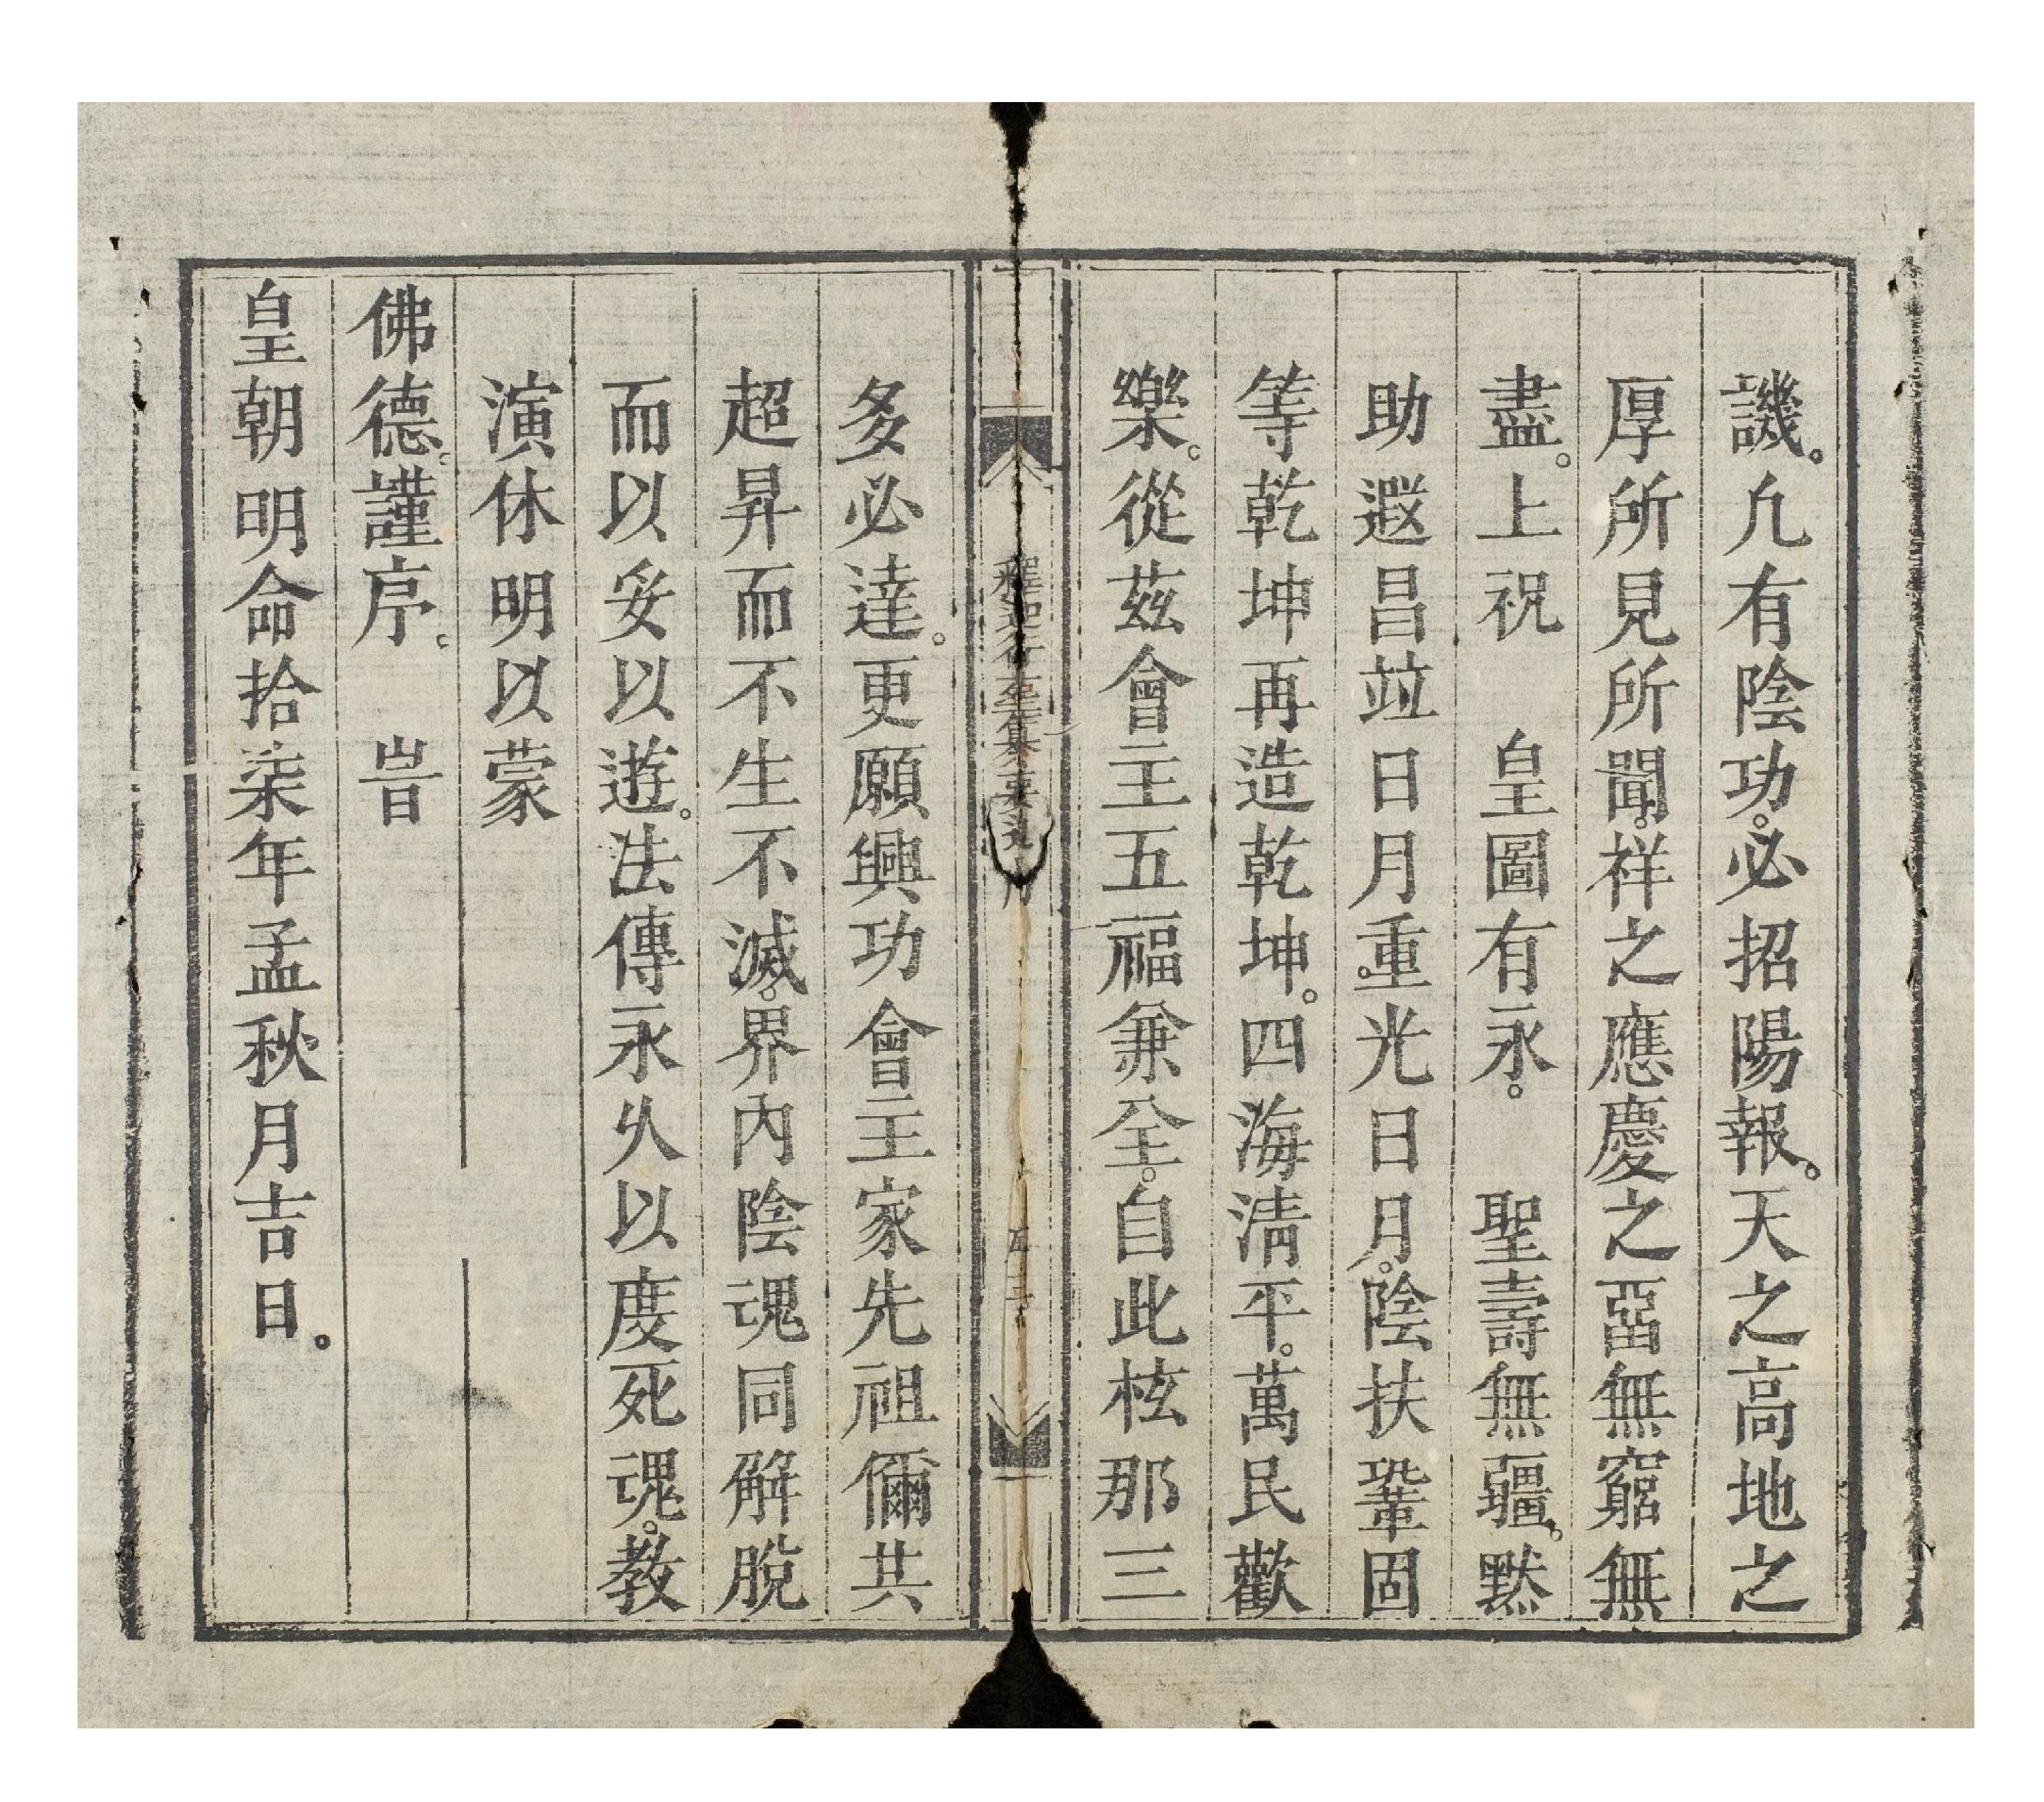 譏。凢有陰功。必招陽報。天之高地之
厚所見所聞。祥之應慶之畱無窮無
盡。上祝　皇圖有永。　聖壽無疆。黙
助遐昌竝日月重。光日月。陰扶鞏固
等乾坤再造乾坤。四海清平。萬民歡
樂。從茲會主五福兼全。自此檀那三
釋迦行
纂要
多必達。更願興功會主家先祖儞共
超昇而不生不滅。界內陰魂同解脫
而以妥以遊。法傳永久以度死魂。教
演休明以蒙
佛德。謹序。　旹
皇朝明命拾柒年孟秋月吉日。